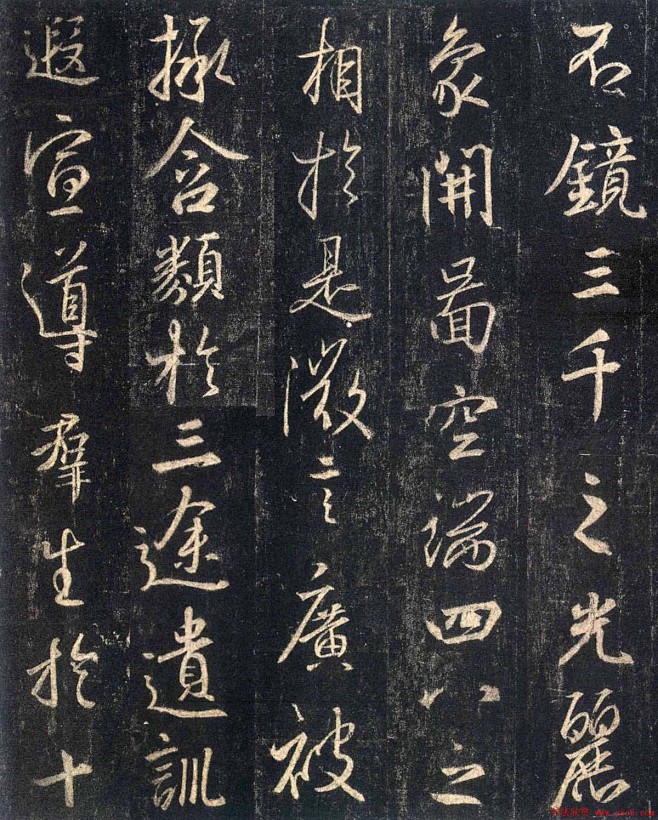 不鏡三千之光麗
象開圖空端四八之
相於是微言廣被
拯含類於三途遺訓
遐宣導羣生於十